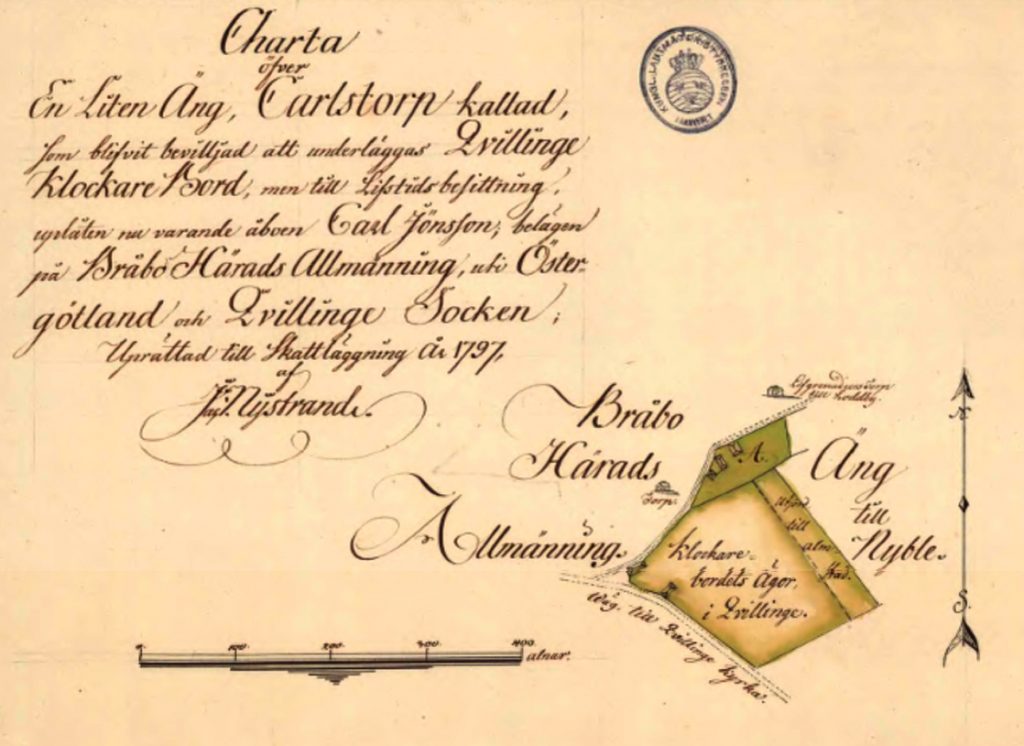 Charta
öfver
En Liten Äng, Carlstorp kallad,
som blifvit beviljad att underläggas Qvillinge
Klockare Bord, men till Lifstids besittning,
uplåten nu varande åboen Carl Jönsson; belägen
på Bråbo Härads Allmänning, uti Öster-
götland och Qvillinge Socken;
Uprättad till Skattläggning År 1797,
af
Nystrand.
KUNGL. LANTMÄTERISTYRELSEN
Torp
till
Bråbo
Härads
Allmänning.
Torp.
A.
Äng
till
Nyble.
till
alm
Klockare-
bordets Ägor,
i Qvillinge.
Wäg till Qvillinge Kyrka.
N
S.
0 100 200 300 400
alnar.